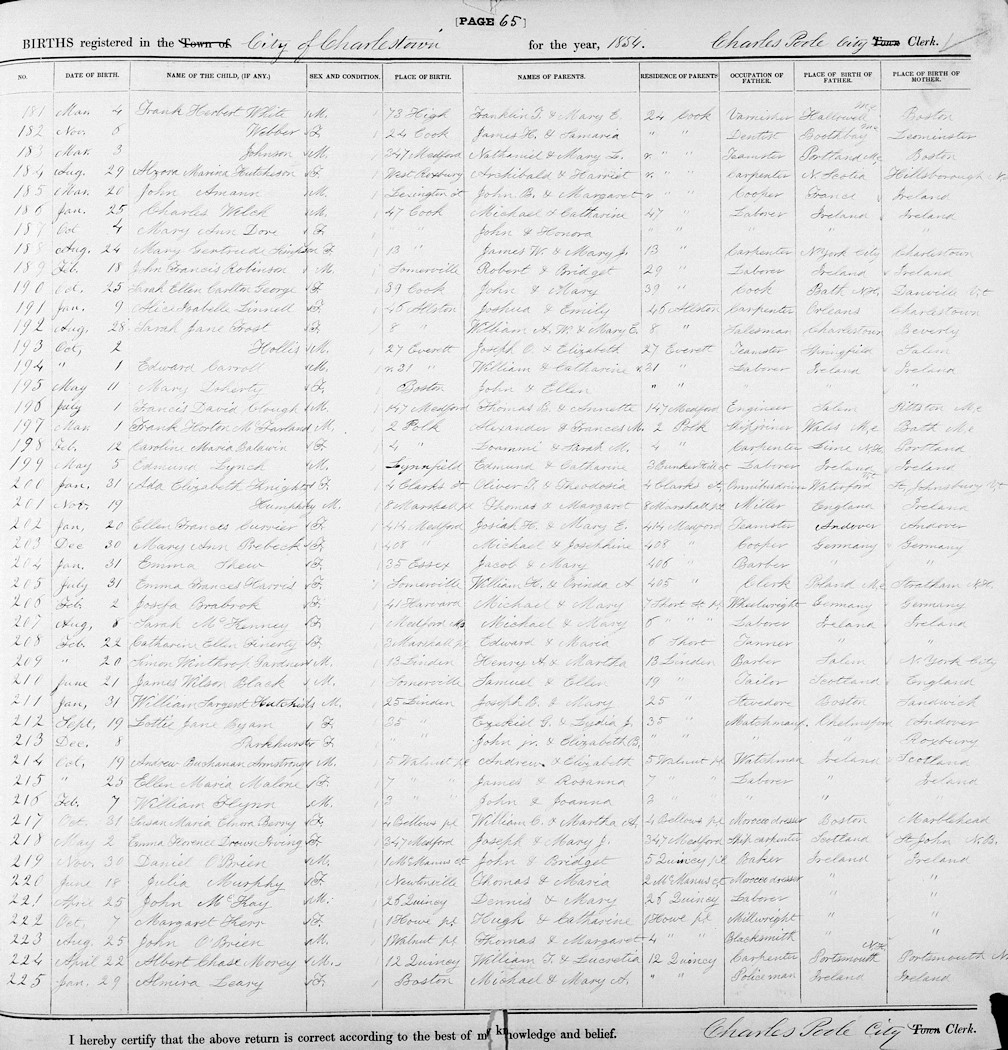 [PAGE 65]
BIRTHS registered in the Town of City of Charlestown for the year, 1854. Charles Poole City Town Clerk.
NO. DATE OF BIRTH. NAME OF THE CHILD, (IF ANY.) SEX AND CONDITION. PLACE OF BIRTH. NAMES OF PARENTS. RESIDENCE OF PARENTS OCCUPATION OF FATHER. PLACE OF BIRTH OF FATHER. PLACE OF BIRTH OF MOTHER.
181 Mar 4 Frank Herbert White M. 73 High Franklin T. & Mary E. 24 Cook Varnisher Hallowell Me Boston
182 Nov 6 Webber F. 24 Cook James H. & Samaria " " Dentist Boothbay Me Leominster
183 Mar. 3 Johnson M. 347 Medford Nathaniel & Mary L. " " Teamster Portland Me Boston
184 Aug. 29 Alzora Marina Hutcheson F. West Roxbury Archibald & Harriet " " Carpenter N. Scotia Hillsborough
185 Mar. 20 John Amann M. Lexington st John B. & Margaret " " Cooper France Ireland
186 Jan. 25 Charles Welch M. 47 Cook Michael & Catharine 47 " Laborer Ireland Ireland
187 Oct 4 Mary Ann Dore F. " " John & Honora " " " " "
188 Aug. 24 Mary Gertrude Simpson F. 13 " James W. & Mary J. 13 " Carpenter N. York City Charlestown
189 Feb. 18 John Francis Robinson M. Somerville Robert & Bridget 29 " Laborer Ireland Ireland
190 Oct. 25 Sarah Ellen Carlton George F. 39 Cook John & Mary 39 " Cook Bath N.H. Danville Vt
191 Jan. 9 Alice Isabella Linnell F. 46 Alston Joshua & Emily 46 Alston Carpenter Orleans Charlestown
192 Aug. 28 Sarah Jane Frost F. 8 " William A. W. & Mary E. 8 " Salesman Charlestown Beverly
193 Oct, 2 Hollis M. 27 Everett Joseph O. & Elizabeth 27 Everett Teamster Springfield Salem
194 " 1 Edward Carroll M. n 21 " William & Catharine 31 " Laborer Ireland Ireland
195 May 11 Mary Doherty F. Boston John & Ellen " " " " "
196 July 1 Francis David Clough M. 147 Medford Thomas B. & Annette 147 Medford Engineer Salem Pittston Me
197 Mar 1 Frank Horton McFarland M. 2 Polk Alexander & Frances M. 2 Polk Shipjoiner Wales Me Bath Me
198 Feb. 12 Caroline Maria Baldwin F. 4 " Loammi & Sarah M. 4 " Carpenter Lime N.H. Portland
199 May 5 Edmund Lynch M. Lynnfield Edmund & Catharine 3 Bunker Hill ct Laborer Ireland Ireland
200 Jan. 31 Ada Elizabeth Knight F. 4 Clarks ct Oliver T. & Theodosia 4 Clarks ct, Waterford Vt St. Johnsbury Vt
201 Nov. 19 Humphry M. 8 Marshall pl Thomas & Margaret 8 Marshall pl Miller England Ireland
202 Jan, 20 Ellen Frances Currier F. 414 Medford Josiah H. & Mary E. 414 Medford Teamster Andover Andover
203 Dec 30 Mary Ann Prebeck F. 408 " Michael & Josephine 408 " Cooper Germany Germany
204 Jan. 31 Emma Shew F. 35 Essex Jacob & Mary 406 " Barber " "
205 July 31 Emma Frances Harris F. Somerville William H. & Orinda A. 405 " Clerk Poland Me
206 Feb. 2 Josefa Brabrok F. 41 Harvard Michael & Mary 7 Short st pl Wheelwright Germany Germany
207 Aug, 8 Sarah McKenney F. Medford Michael & Mary 6 " " Laborer Ireland Ireland
208 Feb. 22 Catharine Ellen Finerty F. 3 Marshall pl Edward & Maria 6 Short Tanner " "
209 " 20 Simon Winthrop Gardner M. 13 Linden Henry A. & Martha 13 Linden Barber Salem N. York City
210 June 21 James Wilson Black M. Somerville Samuel & Ellen 19 " Tailor Scotland England
211 Jan, 31 William Sargent Hutchins M. 25 Linden Joseph B. & Mary 25 " Stevedore Boston Sandwich
212 Sept, 19 Lottie Jane Byam F. 35 " Ezekiel G. & Lydia J. 35 " Matchmauf. Chelmsford Andover
213 Dec, 8 Parkhurst F. " " John jr. & Elizabeth B. " " " " Roxbury
214 Oct, 19 Andrew Buchanan Armstrong M. 5 Walnut pl Andrew & Elizabeth 5 Walnut pl Watchman Ireland Scotland
215 " 25 Ellen Maria Malone F. 7 " " James & Rosanna 7 " " Laborer " Ireland
216 Feb. 7 William Flynn M. 2 " " John & Joanna 2 " " " " "
217 Oct. 31 Susan Maria Emma Berry F. 4 Bellows pl William C. & Martha A. 4 Bellows pl Morocco dresser Boston Marblehead
218 May 2 Emma Florence Drown Irving F. 347 Medford Joseph & Mary J. 347 Medford Ship carpenter Scotland St John N.B.
219 Nov. 30 Daniel O'Brien M. 1 McManus ct John & Bridget 5 Quincy pl Baker Ireland Ireland
220 June 18 Julia Murphy F. Newtonville Thomas & Maria 2 McManus ct Morocco dresser " "
221 April 25 John McKay M. 26 Quincy Dennis & Mary 26 Quincy Laborer " "
222 Oct, 7 Margaret Kerr F. 1 Howe pl Hugh & Catharine 1 Howe pl Millwright " "
223 Aug. 25 John O'Brien M. 1 Walnut pl Thomas & Margaret 4 " Blacksmith " "
224 April 22 Albert Chase Morey M. 12 Quincy William T. & Lucretia 12 Quincy Carpenter Portsmouth N.H. Portsmouth
225 Jan. 29 Almira Leary F. Boston Michael & Mary A. " " Policeman Ireland Ireland
I hereby certify that the above return is correct according to the best of my knowledge and belief. Charles Poole City Town Clerk.